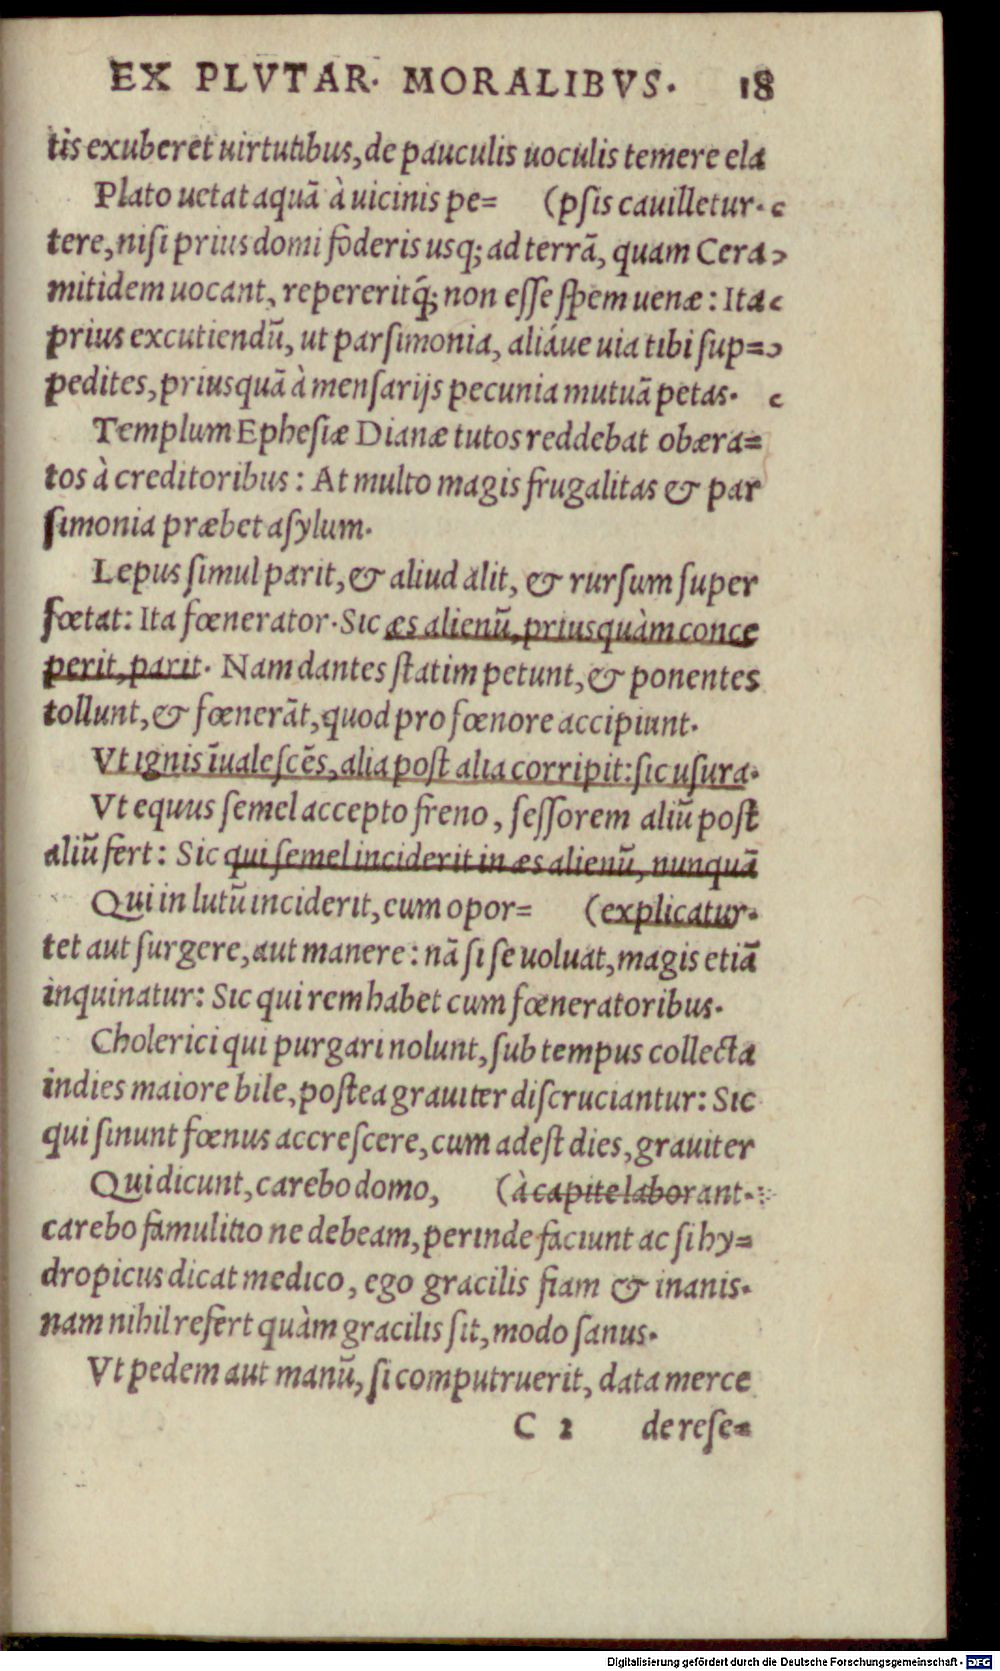 EX PLVTAR. MORALIBVS. 18
tis exuberet uirtutibus, de pauculis uoculis temere ela
Plato uetat aquã à uicinis pe= (psis cauilletur.
tere, nisi prius domi foderis usq; ad terrã, quam Cera
mitidem uocant, repereritq́; non esse spem uenæ: Ita
prius excutiendũ, ut parsimonia, aliáue uia tibi sup=
pedites, priusquã à mensarijs pecunia mutuã petas.
Templum Ephesiæ Dianæ tutos reddebat obæra=
tos à creditoribus: At multo magis frugalitas & par
simonia præbet asylum.
Lepus simul parit, & aliud alit, & rursum super
fœtat: Ita fœnerator. Sic æs alienũ, priusquàm conce
perit, parit. Nam dantes statim petunt, & ponentes
tollunt, & fœnerãt, quod pro fœnore accipiunt.
Vt ignis ĩualescẽs, alia post alia corripit: sic usura.
Vt equus semel accepto freno, sessorem aliũ post
aliũ fert: Sic qui semel inciderit in æs alienũ, nunquã
Qui in lutũ inciderit, eum opor= (explicatur.
tet aut surgere, aut manere: nã si se uoluat, magis etiã
inquinatur: Sic qui rem habet cum fœneratoribus.
Cholerici qui purgari nolunt, sub tempus collecta
indies maiore bile, postea grauiter discruciantur: Sic
qui sinunt fœnus accrescere, cum adest dies, grauiter
Qui dicunt, carebo domo, (à capite laborant.
carebo famulitio ne debeam, perinde faciunt ac si hy=
dropicus dicat medico, ego gracilis fiam & inanis.
nam nihil refert quàm gracilis sit, modo sanus.
Vt pedem aut manũ, si computruerit, data merce
C 2 de rese=
Digitalisierung gefördert durch die Deutsche Forschungsgemeinschaft - DFG